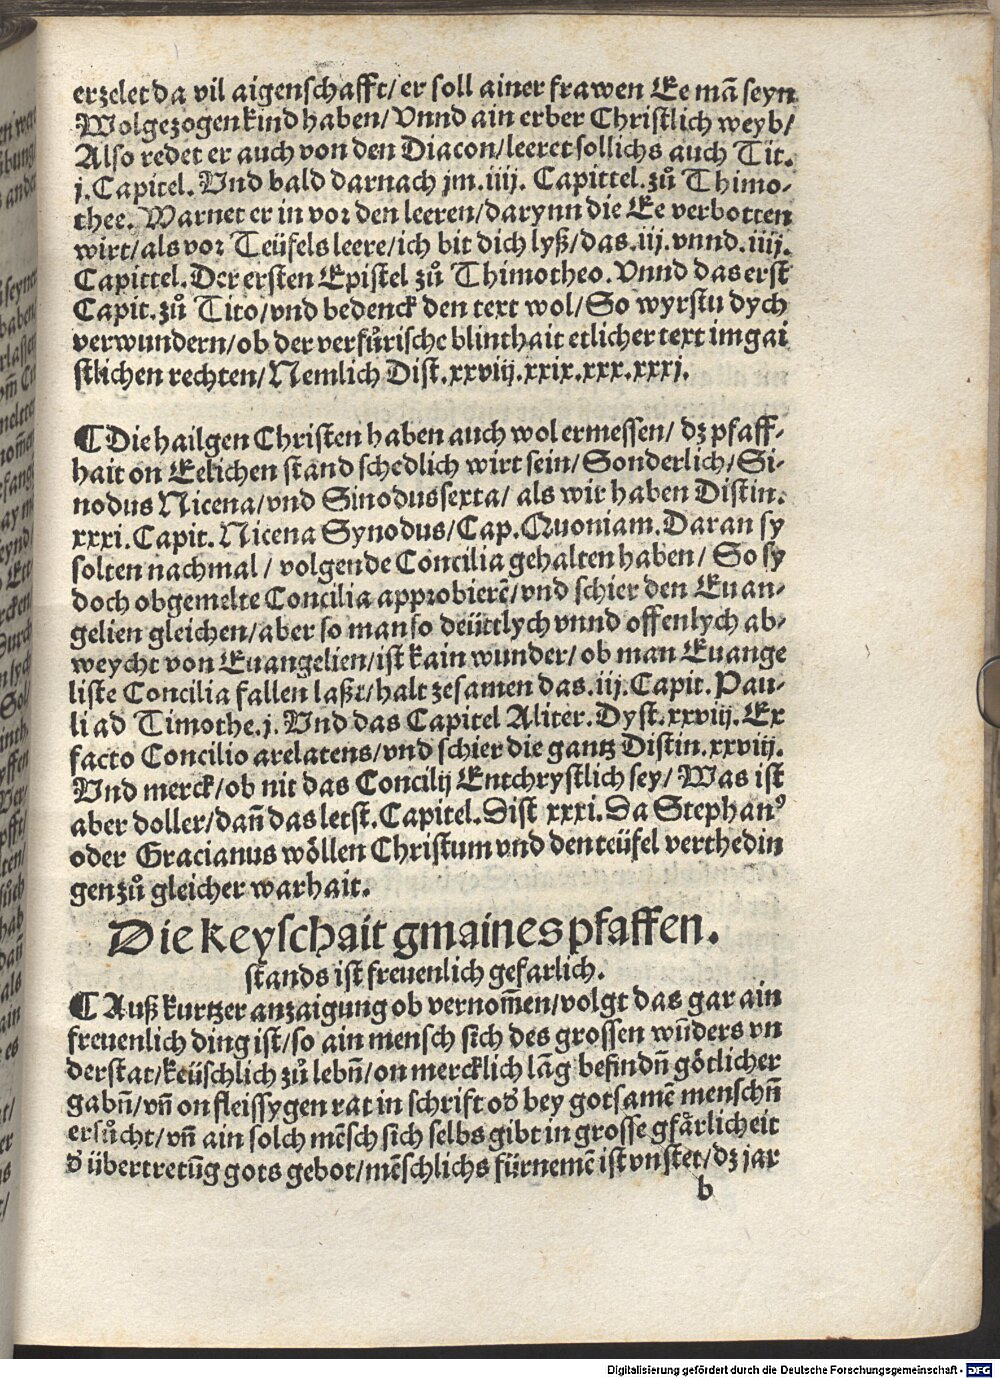 erzelet da vil aigenschafft/ er soll ainer frawen Ee mā seyn
Wolgezogen kind haben/ Vnnd ain erber Christlich weyb/
Also redet er auch von den Diacon/ leeret sollichs auch Tit.
j. Capitel. Vnd bald darnach jm .iiij. Capittel. zů Thimo-
thee. Warnet er in vor den leeren/ darynn die Ee verbotten
wirt/ als vor Teüfels leere/ ich bit dich lyß/ das .iij. vnnd .iiij.
Capittel. Der ersten Epistel zů Thimotheo. Vnnd das erst
Capit. zů Tito/ vnd bedenck den text wol/ So wyrstu dych
verwundern/ ob der verfůrische blinthait etlicher text im gai
stlichen rechten/ Nemlich Dist. xxviij. xxix. xxx. xxxj.
¶ Die hailgen Christen haben auch wol ermessen/ dz pfaff-
hait on Eelichen stand schedlich wirt sein/ Sonderlich/ Si-
nodus Nicena/ vnd Sinodus sexta/ als wir haben Distin.
xxxi. Capit. Nicena Synodus/ Cap. Quoniam. Daran sy
solten nachmal/ volgende Concilia gehalten haben/ So sy
doch obgemelte Concilia approbierē/ vnd schier den Euan-
gelien gleichen/ aber so man so deüttlych vnnd offenlych ab-
weycht von Euangelien/ ist kain wunder/ ob man Euange
liste Concilia fallen laßt/ halt zesamen das .iij. Capit. Pau-
li ad Timothe. j. Vnd das Capitel Aliter. Dyst. xxviij. Ex
facto Concilio arelatens/ vnd schier die gantz Distin. xxviij.
Vnd merck/ ob nit das Concilij Entchrystlich sey/ Was ist
aber doller/ dañ das letst. Capitel. Dist xxxi. Da Stephanꝰ
oder Gracianus wöllen Christum vnd den teüfel verthedin
gen zů gleicher warhait.
Die keyschait gmaines pfaffen.
stands ist freuenlich gefarlich.
¶ Auß kurtzer anzaigung ob vernom̄en/ volgt das gar ain
freuenlich ding ist/ so ain mensch sich des grossen wūders vn
derstat/ keüschlich zů lebñ/ on mercklich lāg befindñ götlicher
gabñ/ vñ on fleissygen rat in schrift oď bey gotsamē menschñ
ersůcht/ vñ ain solch mēsch sich selbs gibt in grosse gfärlicheit
ď übertretūg gots gebot/ mēschlichs fürnemē ist vnstet/ dz jar
b
Digitalisierung gefördert durch die Deutsche Forschungsgemeinschaft - DFG